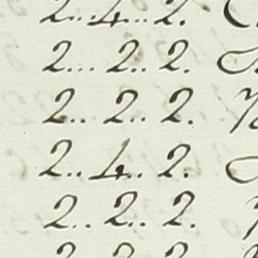 2...4...2.
2... 2... 2.
2... 2... 2.
2... 4... 2.
2... 2... 2.
2 2 2